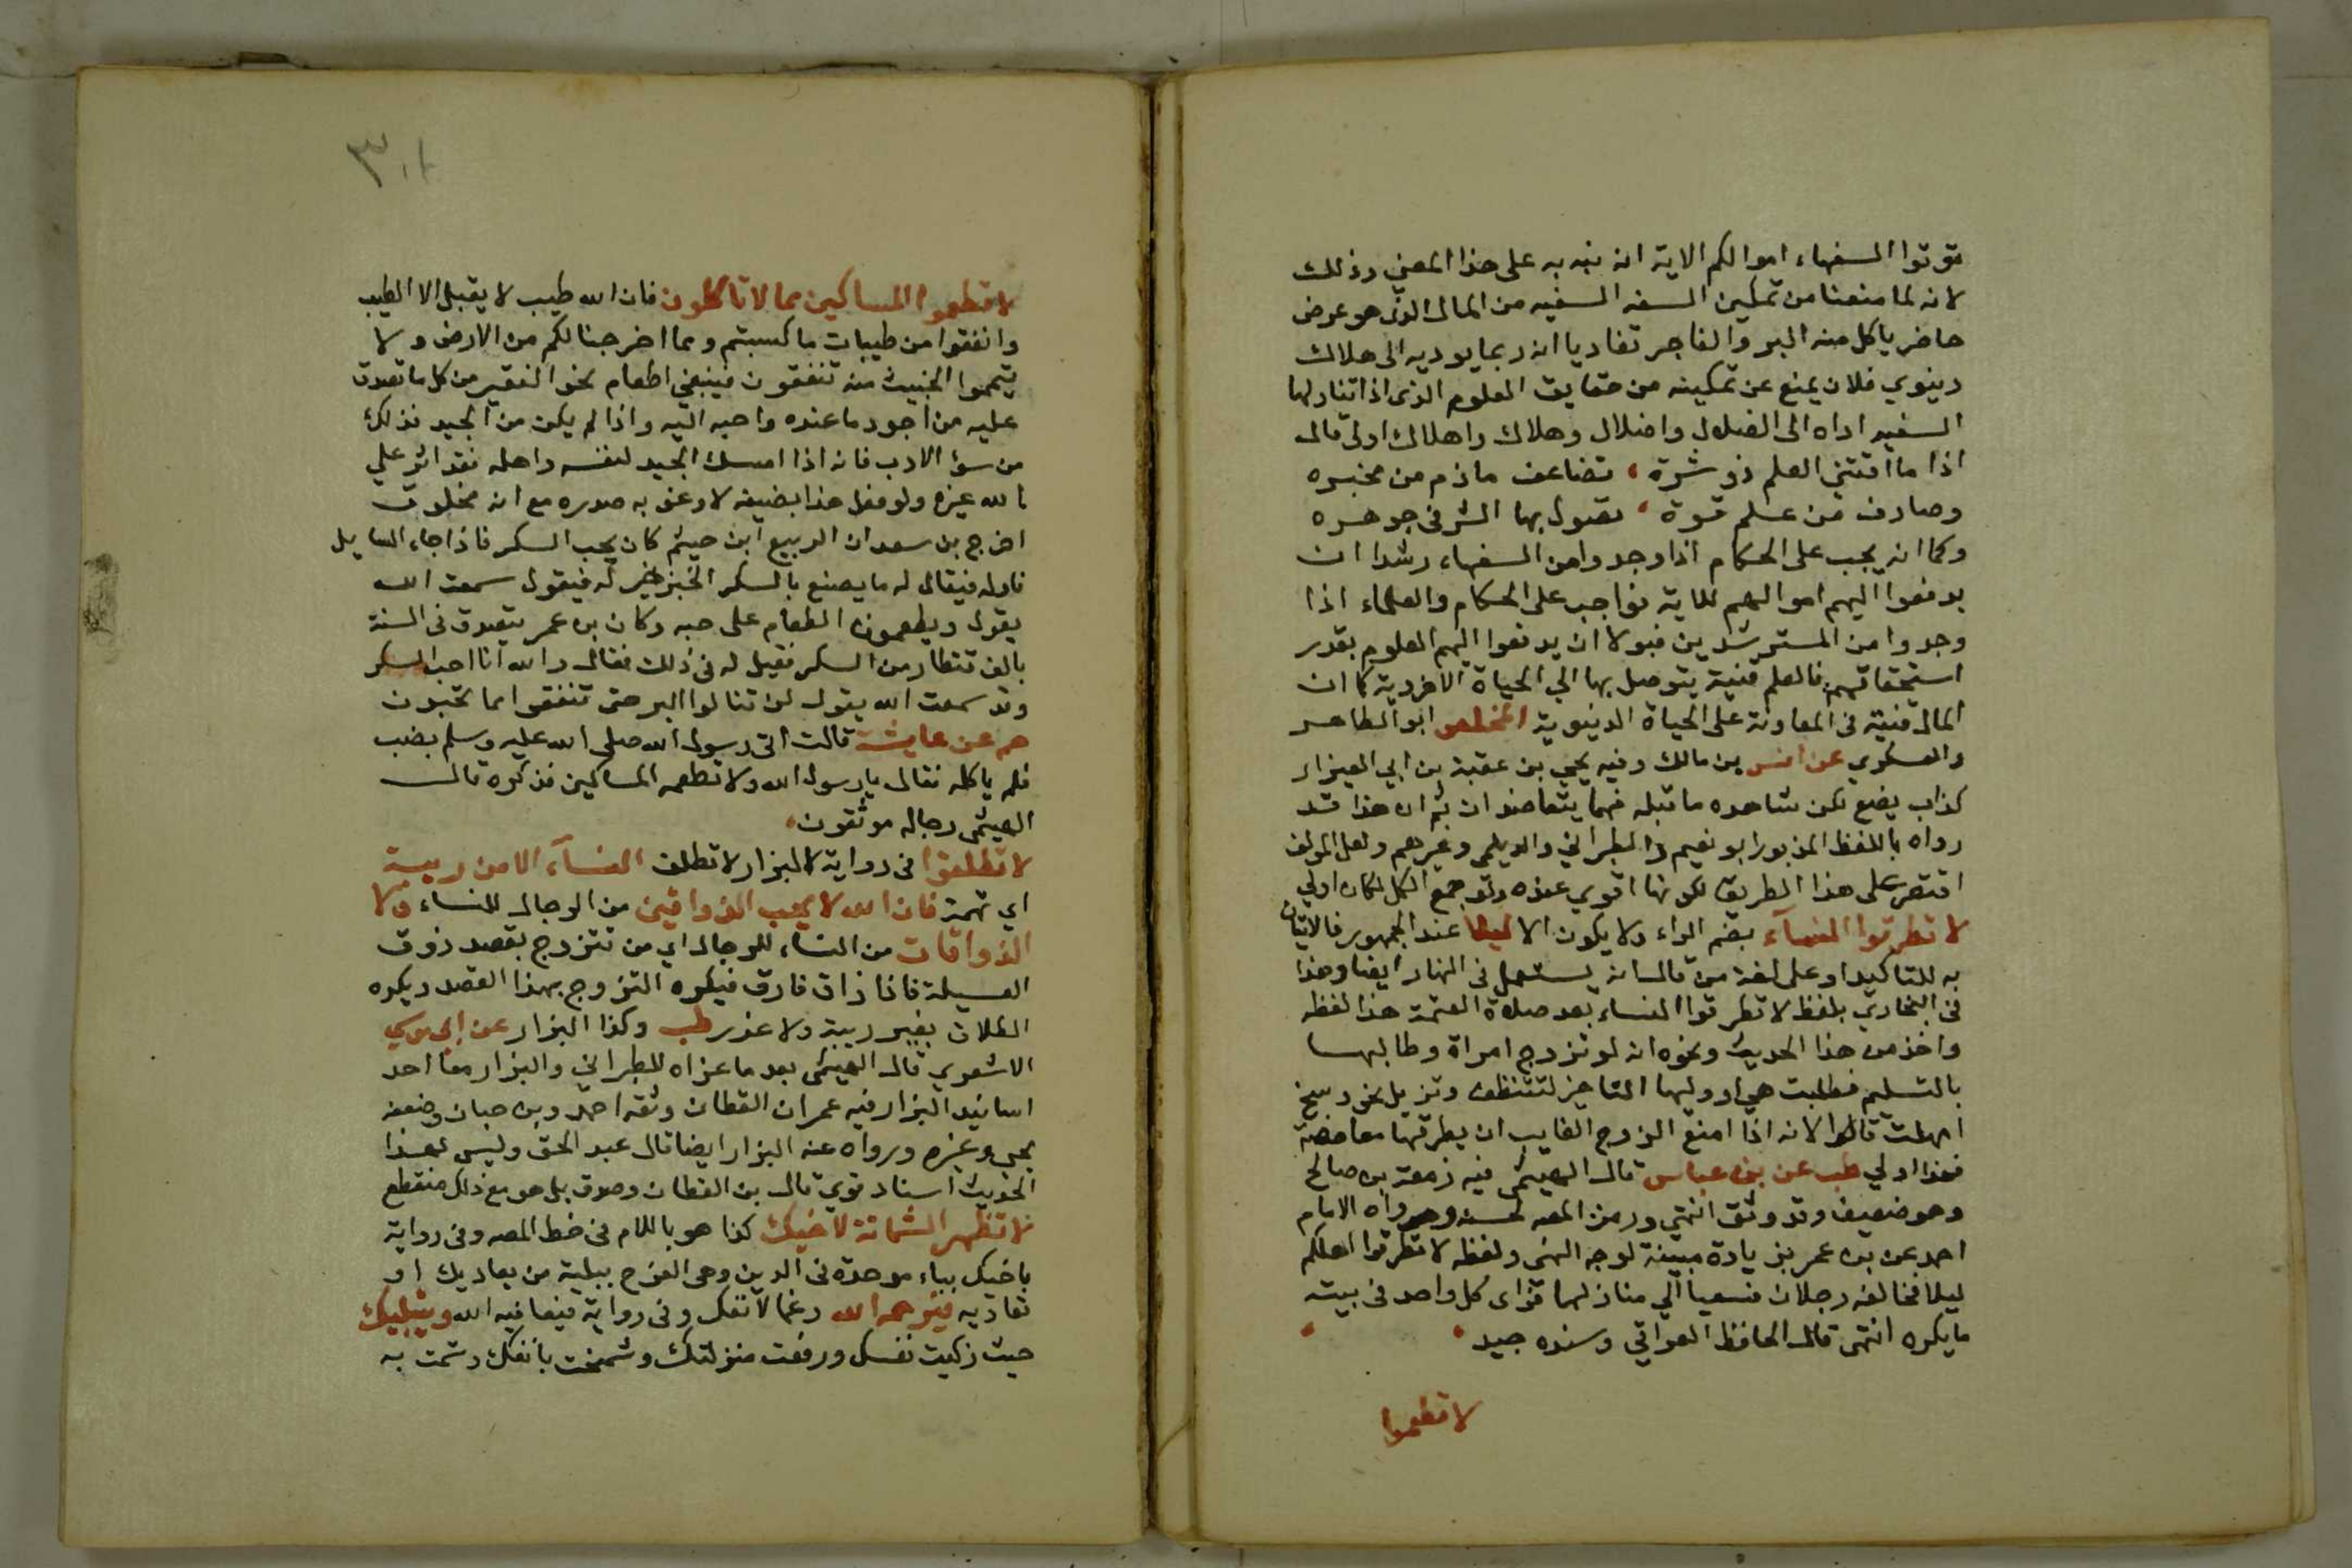 توتوا السفهاء اموالكم الاية انه نبه به على هذا المعني وذلك
لانه لما منعنا من تمكين السفه السفيه من المال الذي هو عرض
حاضر ياكل منه البر والفاجر تفاديا انه ربما يوديه الى هلاك
دينوي فلان يمنع عن تمكينه من حقايق العلوم الذي اذا تناولها
السفيه اداه الى الضلال واضلال وهلاك واهلاك اولى قال
اذا ما اقتني العلم ذو شرة ، تضاعف ماذم من مخبره
وصادف من علم قوة ، يصول بها الشر في جوهره
وكما انه يجب على الحكام اذا وجدوا من السفهاء رشدا ان
يدفعوا اليهم اموالهم للاية فواجب على الحكام والعلماء اذا
وجدوا من المسترشدين قبولا ان يدفعوا اليهم العلوم بقدر
استحقاقهم فالعلم قنية يتوصل بها الي الحياة الاخروية كما ان
المال قنية في المعاونة على الحياة الدينوية المخلص ابو الطاهر
والعسكري عن انس بن مالك وفيه يحيي بن عقبة بن ابي العيزار
كذاب يضع لكن شاهده ما قبله فهما يتعاضدان ثم ان هذا قد
رواه باللفظ المزبور ابو نعيم والطبراني والديلمي وغيرهم ولعل المولف
اقتصر على هذا الطريق لكونها اقوي عنده ولو جمع الكل لكان اولي
لا تطرقوا النساء بضم الراء ولا يكون الا ليلا عند الجمهور فالاتيان
به للتاكيد او على لغة من قال انه يستعمل في النهار ايضا وهذا
في البخاري بلفظ لا تطرقوا النساء بعد صلاة العتمة هذا لفظه
واخذ من هذا الحديث ونحوه انه لو تزوج امراة وطالبها
بالتسليم فطلبت هي او وليها التاخير لتتنظف وتزيل نحو وسخ
امهلت قالوا لانه اذا امنع الزوج الغايب ان يطرقها مغافصة
فهذا اولي طب عن بن عباس قال الهيثمي فيه زمعة بن صالح
وهو ضعيف وقد وثق انتهي ورمز المص لحسنه ورواه الامام
احمد عن بن عمر بزيادة مبينة لوجه النهي ولفظه لا تطرقوا اهلكم
ليلا فخالفه رجلان فسعيا الي منازلهما فراى كل واحد في بيته
ما يكره انتهى قال الحافظ العراقي وسنده جيد
لا تطعموا
لا تطعموا المساكين مما لا تاكلون فان الله طيب لا يقبل الا الطيب
وانفقوا من طيبات ما كسبتم ومما اخرجنا لكم من الارض ولا
تيمموا الخبيث منه تنفقون فينبغي اطعام نحو الفقير من كل ما تصدق
عليه من اجود ما عنده واحبه اليه واذا لم يكن من الجيد فذلك
من سؤ الادب فانه اذا امسك الجيد لنفسه واهله فقد اثر علي
الله غيره ولو فعل هذا بضيفه لاوغر به صدره مع انه مخلوق
اخرج بن سعد ان الربيع ابن خيثم كان يحب السكر فاذا جاء السايل
ناوله فيقال له ما يصنع بالسكر الخبز خير له فيقول سمعت الله
يقول ويطعمون الطعام على حبه وكان بن عمر يتصدق في السنة
بالف قنطار من السكر فقيل له في ذلك فقال والله انا احب السكر
وقد سمعت الله يقول لن تنالوا البر حتى تنفقوا مما تحبون
حم عن عايشة قالت اتى رسول الله صلى الله عليه وسلم بضب
فلم ياكله فقال يا رسول الله ولا تطعمه المساكين فذكره قال
الهيثمي رجاله موثقون ،
لا تطلقوا في رواية للبزار لا تطلق النساء الا من ريبة
اي تهمة فان الله لا يحب الذواقين من الرجال للنساء ولا
الذواقات من النساء للرجال اي من تتزوج بقصد ذوق
العسيلة فاذا ذاق فارق فيكره التزوج بهذا القصد ويكره
الطلاق بغير ريبة ولا عذر طب وكذا البزار عن ابي موسي
الاشعري قال الهيثمي بعد ما عزاه للطبراني والبزار معا احد
اسانيد البزار فيه عمران القطان وثقه احمد وبن حبان وضعفه
يحيي وغيره ورواه عنه البزار ايضا قال عبد الحق وليس لهذا
الحديث اسناد قوي قال بن القطان وصدق بل هو مع ذلك منقطع
لا تظهر الشماتة لاخيك كذا هو باللام في خط المص وفي رواية
باخيك بباء موحدة في الدين وهي الفرح ببلية من يعاديك او
تعاديه فيرحمه الله رغما لانفك وفي رواية فيعافيه الله ويبتليك
حيث زكيت نفسك ورفعت منزلتك وشمخت بانفك وشمت به